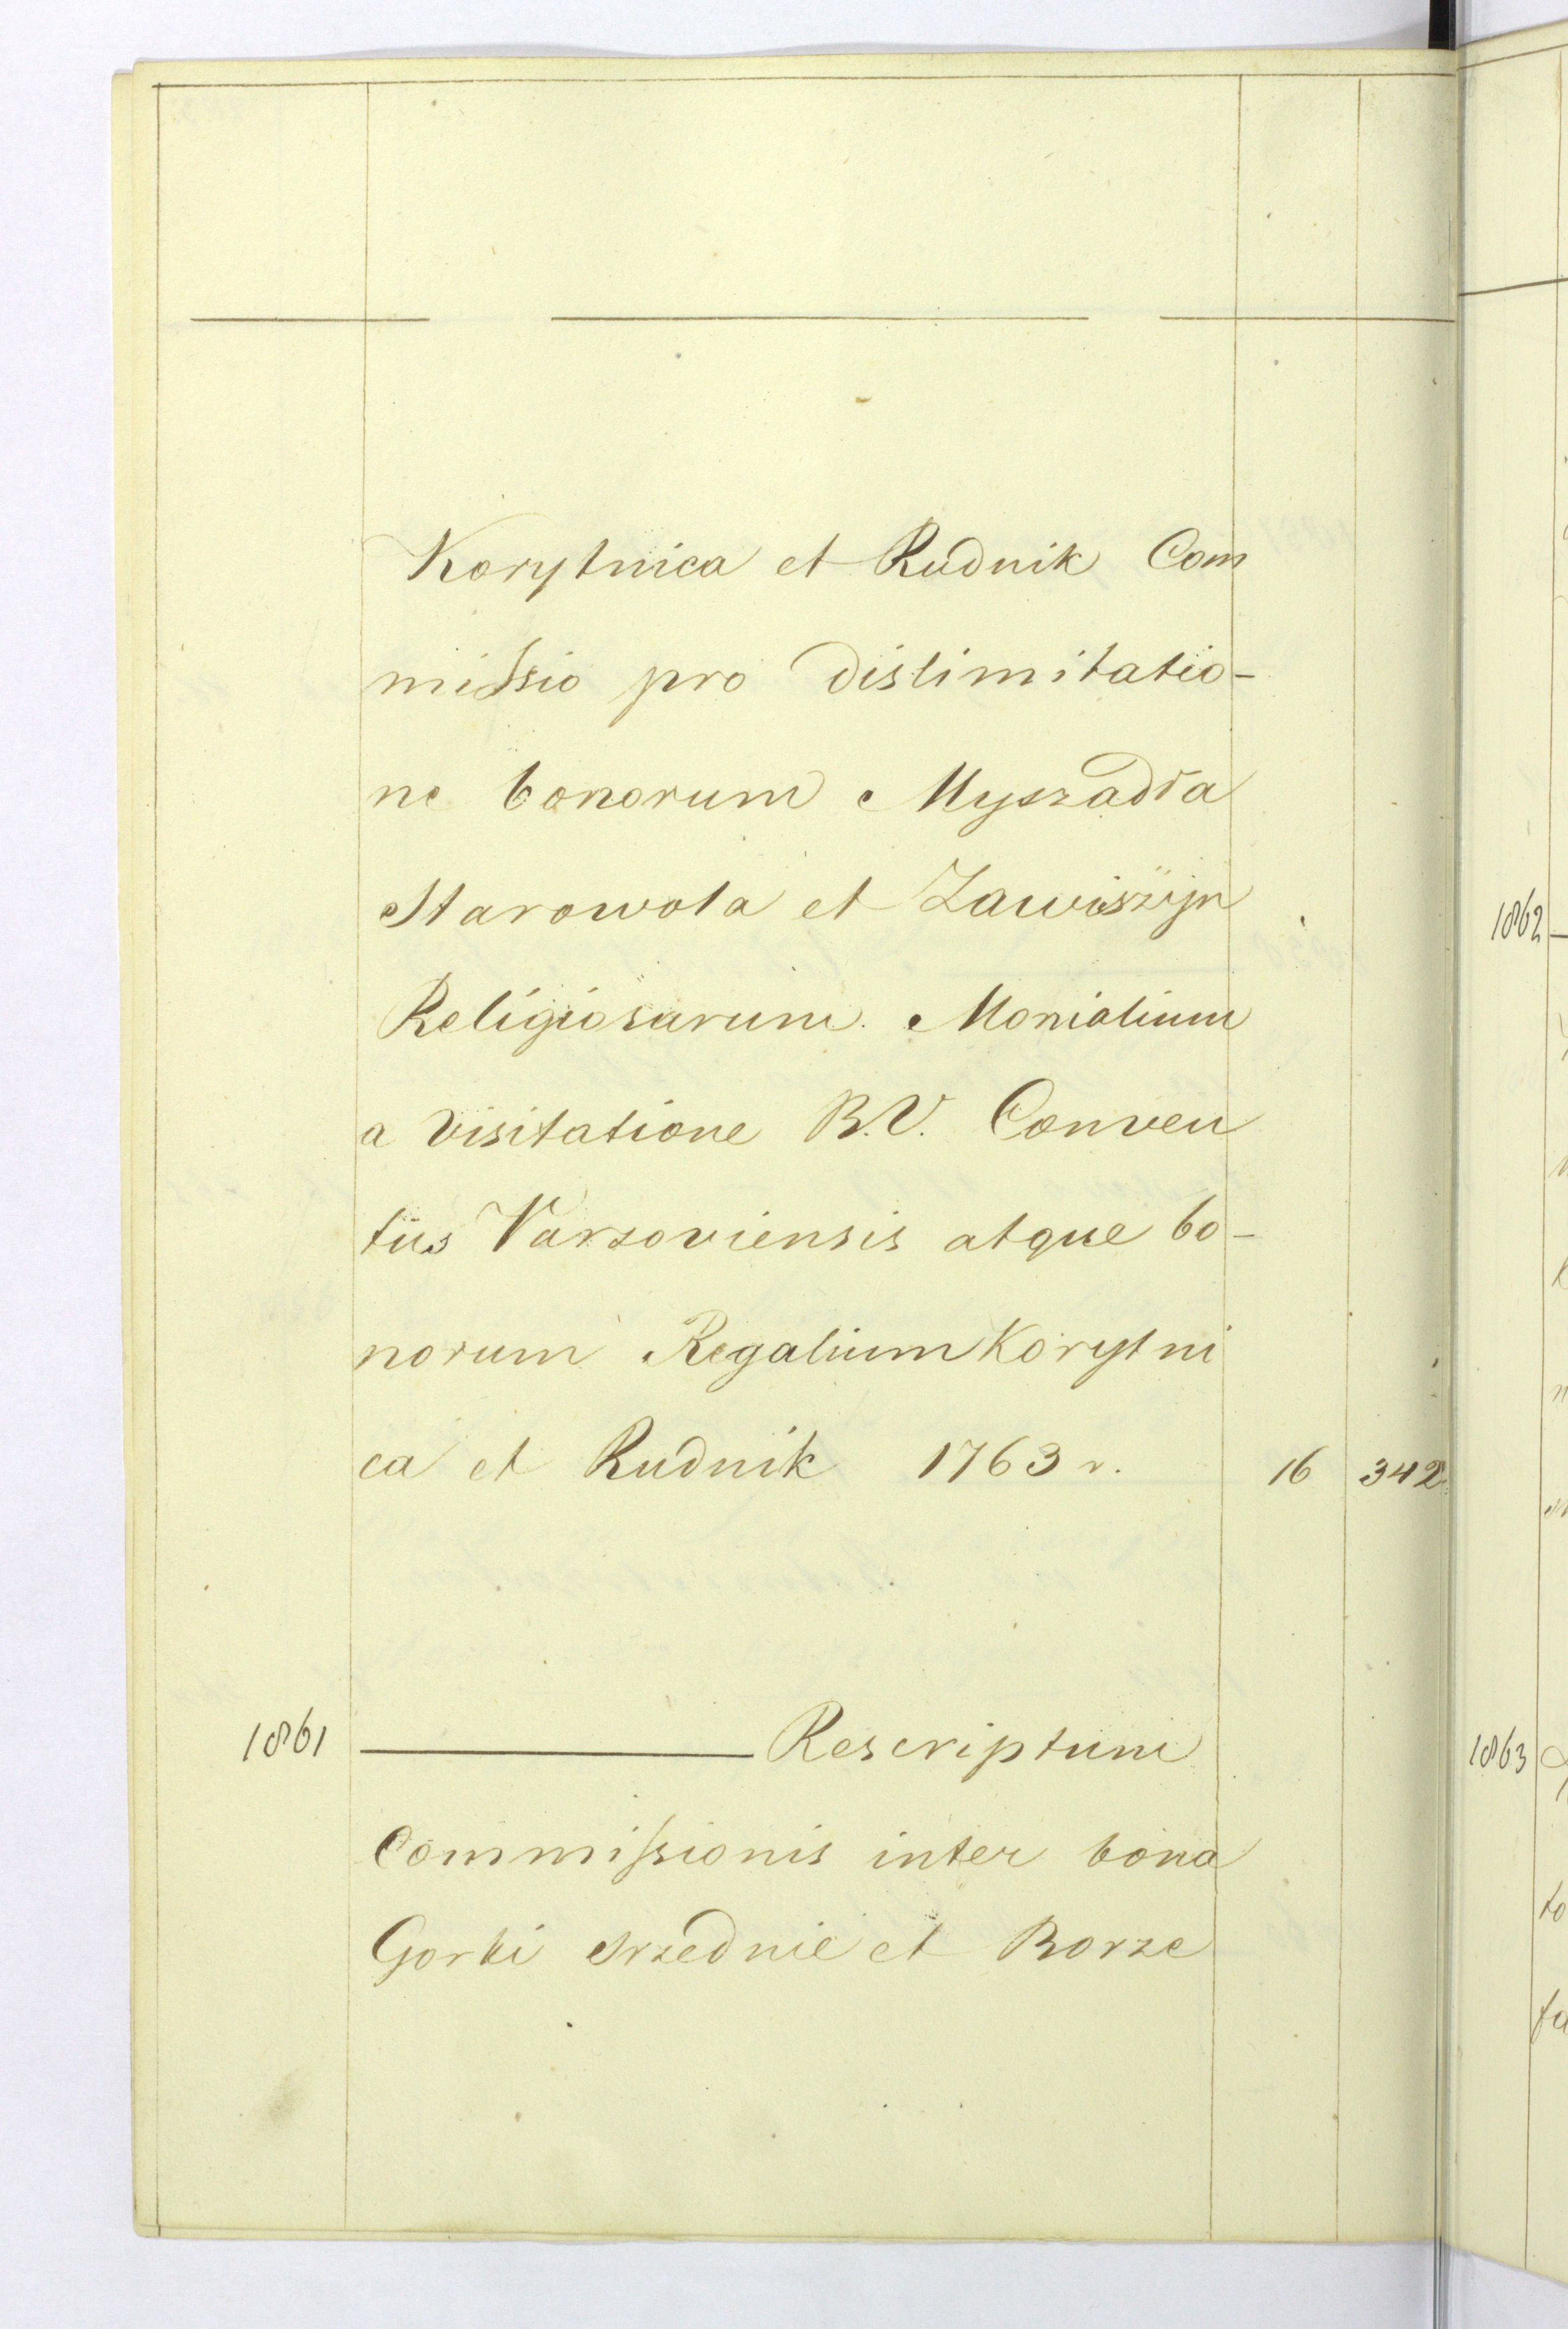 Korytnica et Rudnik Com
missio pro dislimitatio-
ne bonorum Myszadła
Starowola et Zawiszyn
Religiosarum Monialium
a Visitatione B.V. Conven
tus Varsoviensis atque bo-
norum Regalium Korytni
ca et Rudnik 1763 r. 16 342
1861 ——— Rescriptum
Commissionis inter bona
Gorki Srzednie et Borze
1862
1863
to
fa